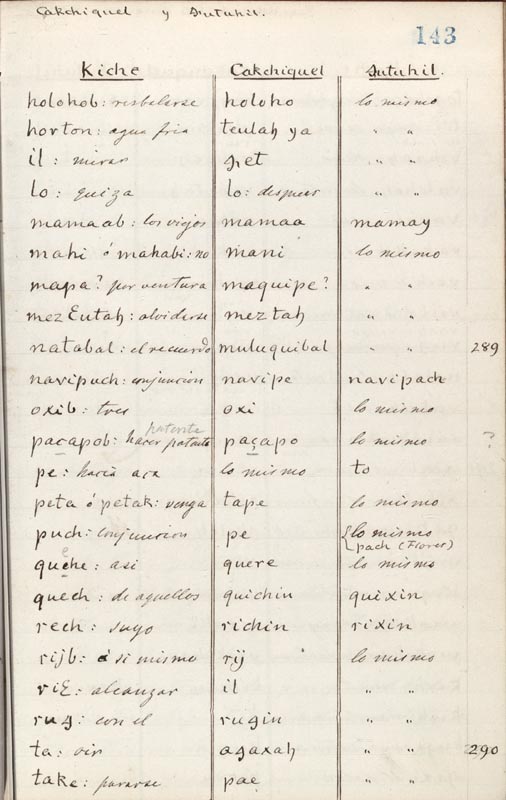 Cakchiquel y Sutuhil.
143
Kiche Cakchiquel Sutuhil.
holohob: resbelarse holoho lo mismo
horton: agua fria teulah ya " "
il: mirar pet " "
lo: quiza lo: despues " "
mamaab: los viejos mamaa mamay
mahi ó mahabi: no mani lo mismo
mapa? por ventura maquipe? " "
mezEutah: olvidarse meztah " "
natabal: el recuerdo muluquibal " " 289
navipuch: conjuncion navipe navipach
oxib: tres oxi lo mismo
patente
paçapob: hacer patente paçapo lo mismo ?
pe: hacia aca lo mismo to
peta ó petak: venga tape lo mismo
puch: conjuncion pe lo mismo
pach (Flores)
queche: asi quere lo mismo
quech: de aquellos quichin quixin
rech: suyo richin rixin
rijb: á si mismo rij lo mismo
riE: alcanzar il " "
rug: con el rugin " "
ta: oir agaxah " " 290
take: pararse pae " "